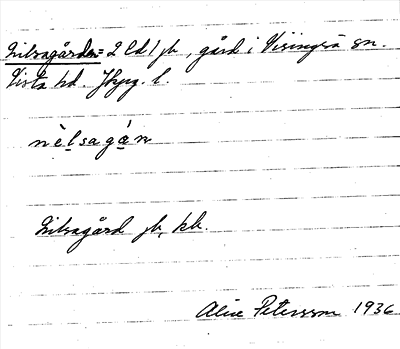 Nilsagården = 2 ld 1 jb, gård i Visingsö sn.
Vista hd. Jkpg. l.
nèlsagán
Nilsagård jb, kb.
Alice Petersson 1936